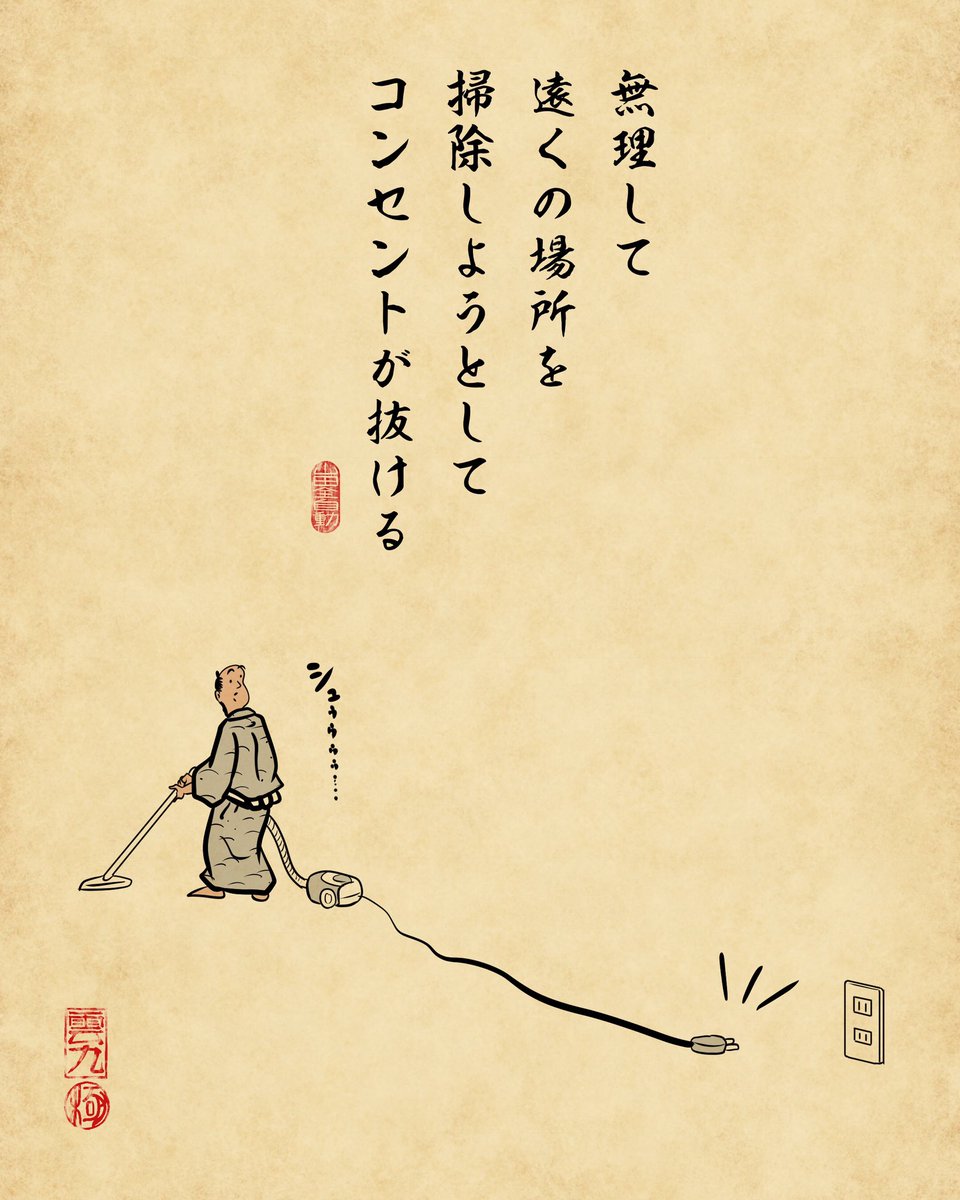 無理して
遠くの場所を
掃除しようとして
コンセントが抜ける
シュゥゥゥゥ……